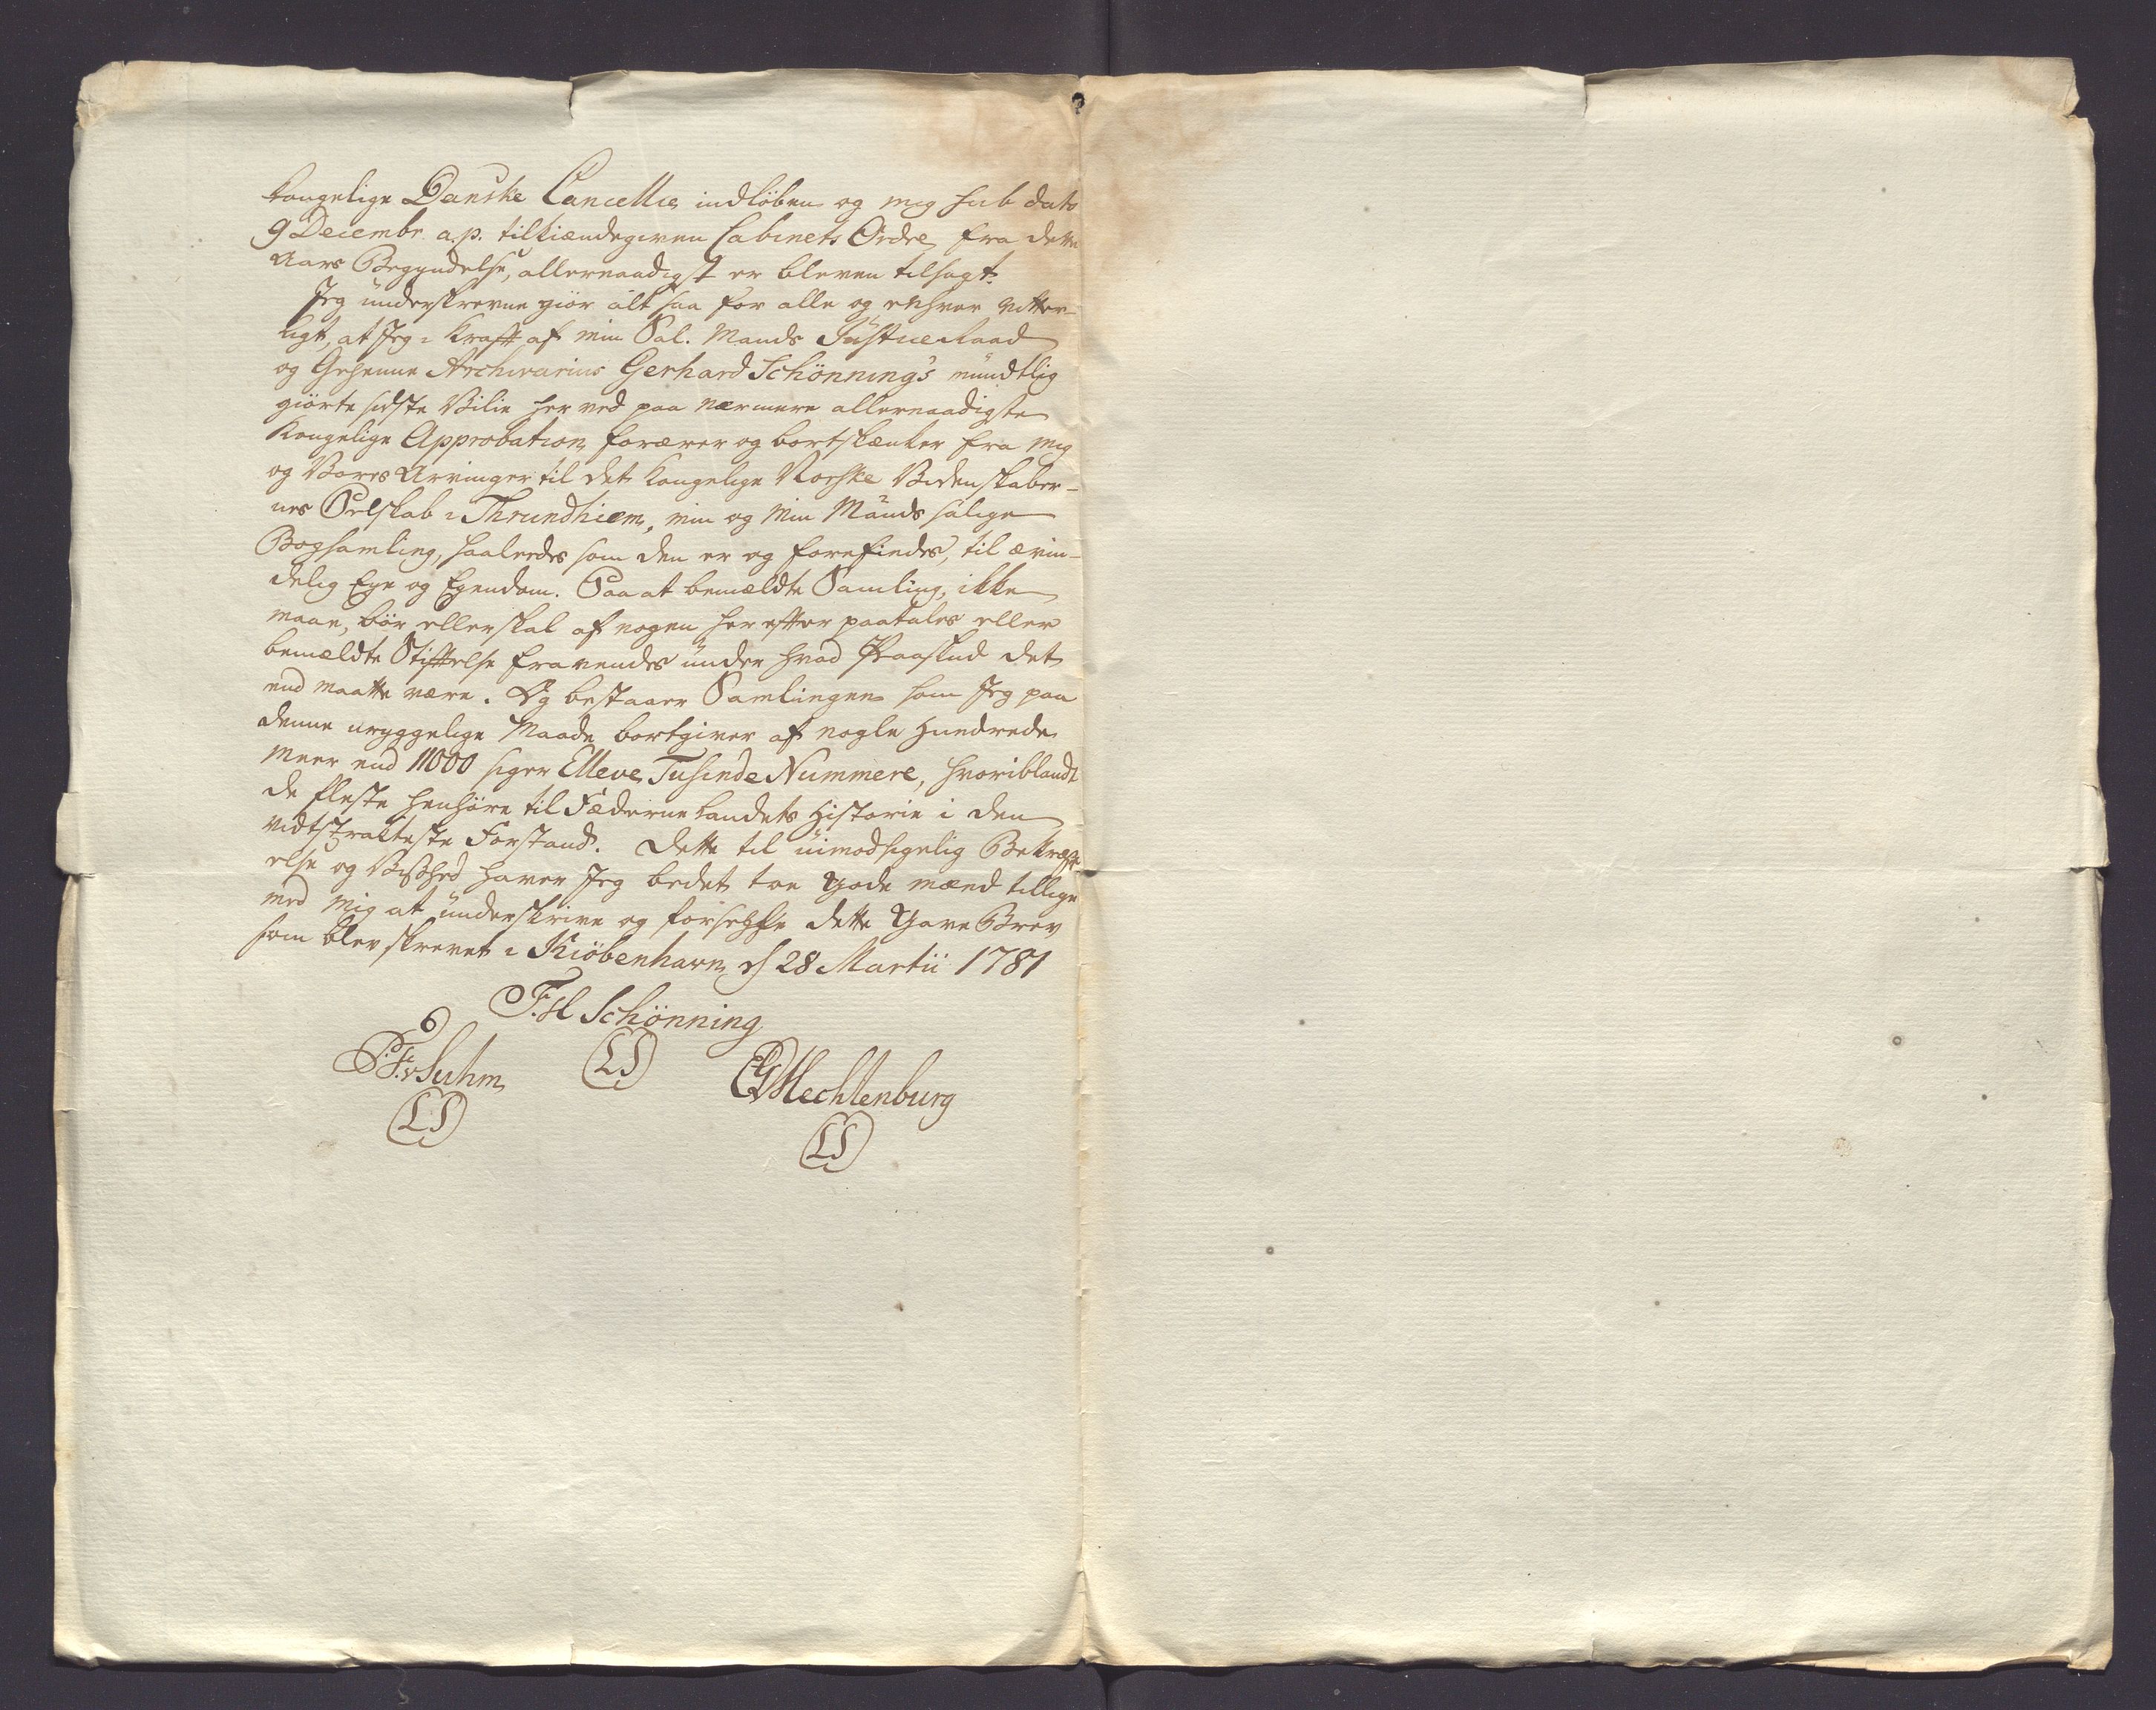 Kongelige Danske Cancellie indløben og mig sub dato
9 Decembr. a.p. tilkiændegiven Cabinets Ordre fra dette
Aars Begyndelse, allernaadigst er bleven tilsagt.
Jeg underskrevne giör alt saa for alle og enhver vitter-
ligt, at Jeg i Krafft af min Sal. Mands Justice Raad
og Geheime Archivarius Gerhard Schönning's mundtlig
giörte sidste Vilie her ved paa nærmere allernaadigste
Kongelige Approbation forærer og bortskænker fra mig
og Vores Arvinger til det Kongelige Norske Videnskaber-
nes Selskab i Thrundhiem, min og min Mands salige
Bogsamling, saaleedes som den er og forefindes, til ævin-
delig Eye og Eyendom. Saa at bemældte Samling, ikke
maae, bör eller skal af nogen her effter paatales eller
bemældte Stifftelse fravendes under hvad Paaskud det
end maatte være. Og bestaaer Samlingen som Jeg paa
denne uryggelige Maade bortgiver af nogle Hundrede
meer end 11000 siger Elleve Tusinde Nummere, hvoriblandt
de fleste henhöre til Fæderne Landets Historie i den
vidtstrakteste Forstand. Dette til uimodsigelig Bekræfft-
else og Vished haver Jeg bedet toe gode mænd tillige
med mig at underskrive og forseigle dette Gave Brev
som blev skrevet i Kiöbenhavn d 28 Martii 1781
F. Sl Schönning
P. F. v Suhm (LS) EG Mechlenburg
(LS) (LS)